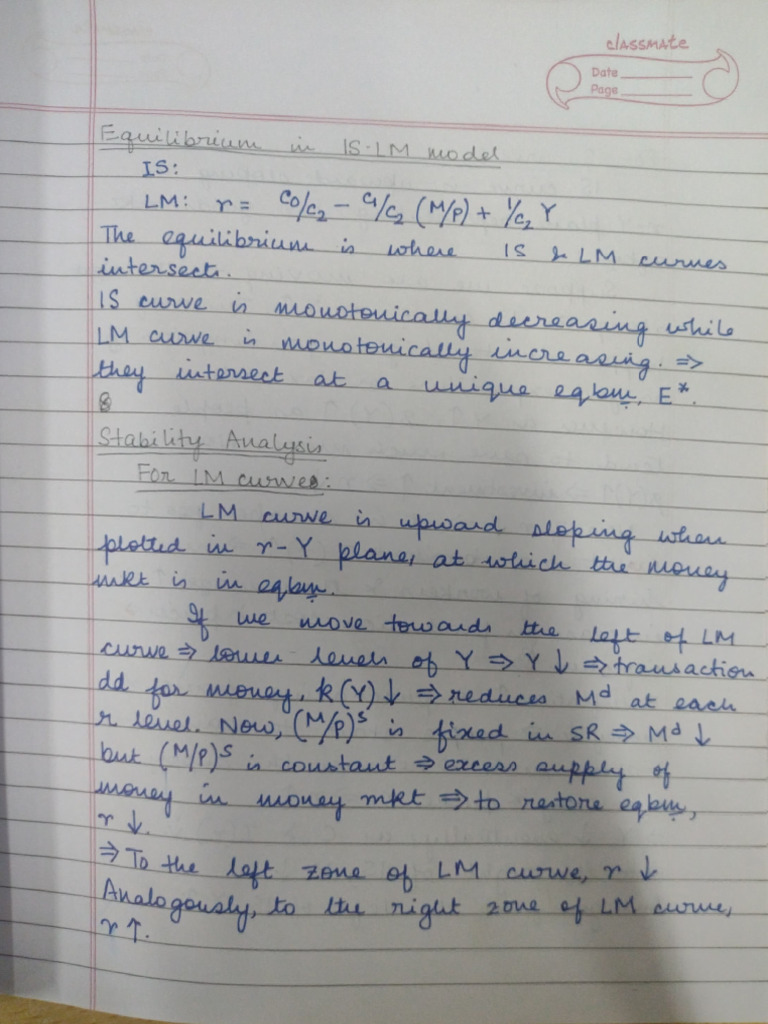 classmate
Date
Page
Equilibrium in IS-LM model
IS:
LM: r = C0/C2 - C1/C2 (M/P) + 1/C2 Y
The equilibrium is where IS & LM curves
intersect.
IS curve is monotonically decreasing while
LM curve is monotonically increasing. ⇒
they intersect at a unique eqbm, E*.
Stability Analysis
For LM curves:
LM curve is upward sloping when
plotted in r-Y plane, at which the money
mkt is in eqbm.
If we move towards the left of LM
curve ⇒ lower levels of Y ⇒ Y ↓ ⇒ transaction
dd for money, k(Y) ↓ ⇒ reduces Mᵈ at each
r level. Now, (M/P)ˢ is fixed in SR ⇒ Mᵈ ↓
but (M/P)ˢ is constant ⇒ excess supply of
money in money mkt ⇒ to restore eqbm,
r ↓.
⇒ To the left zone of LM curve, r ↓
Analogously, to the right zone of LM curve,
r ↑.